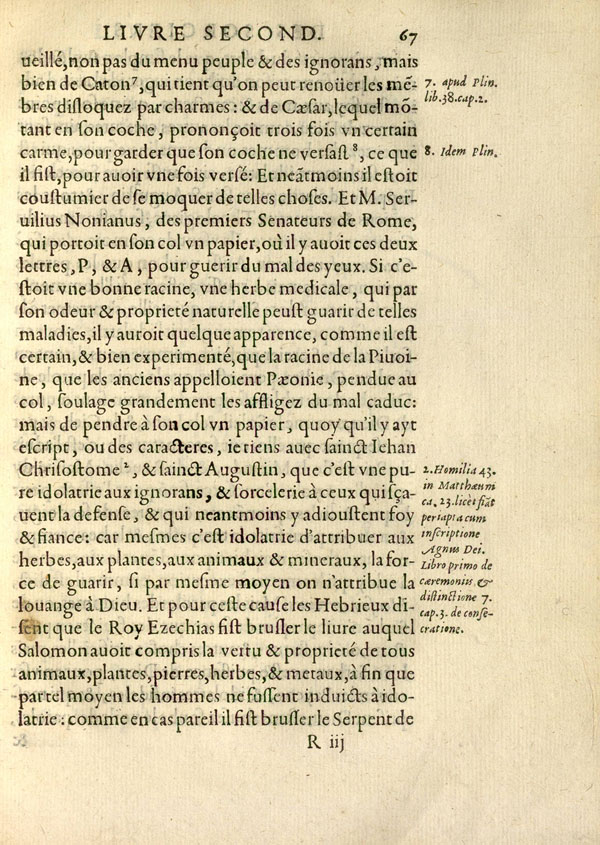 LIVRE SECOND. 67
ueillé, non pas du menu peuple & des ignorans, mais
bien de Caton⁷, qui tient qu'on peut renoüer les mẽ-
bres disloquez par charmes: & de Cæsar, lequel mõ-
tant en son coche, prononçoit trois fois vn certain
carme, pour garder que son coche ne versast⁸, ce que
il fist, pour auoir vne fois versé: Et neãtmoins il estoit
coustumier de se moquer de telles choses. Et M. Ser-
uilius Nonianus, des premiers Senateurs de Rome,
qui portoit en son col vn papier, où il y auoit ces deux
lettres, P, & A, pour guerir du mal des yeux. Si c'e-
stoit vne bonne racine, vne herbe medicale, qui par
son odeur & proprieté naturelle peust guarir de telles
maladies, il y auroit quelque apparence, comme il est
certain, & bien experimenté, que la racine de la Piuoi-
ne, que les anciens appelloient Pæonie, pendue au
col, soulage grandement les affligez du mal caduc:
mais de pendre à son col vn papier, quoy qu'il y ayt
escript, ou des caracteres, ie tiens auec sainct Iehan
Chrisostome², & sainct Augustin, que c'est vne pu-
re idolatrie aux ignorans, & sorcelerie à ceux qui sça-
uent la defense, & qui neantmoins y adioustent foy
& fiance: car mesmes c'est idolatrie d'attribuer aux
herbes, aux plantes, aux animaux & mineraux, la for-
ce de guarir, si par mesme moyen on n'attribue la
louange à Dieu. Et pour ceste cause les Hebrieux di-
sent que le Roy Ezechias fist brusler le liure auquel
Salomon auoit compris la vertu & proprieté de tous
animaux, plantes, pierres, herbes, & metaux, à fin que
par tel moyen les hommes ne fussent induicts à ido-
latrie: comme en cas pareil il fist brusler le Serpent de
R iij
7. apud Plin.
lib. 38. cap. 2.
8. Idem Plin.
2. Homilia 43.
in Matthæum
ca. 23. licet fiãt
periapta cum
inscriptione
Agnus Dei.
Libro primo de
cæremoniis &
distinctione 7.
cap. 3. de conse-
cratione.